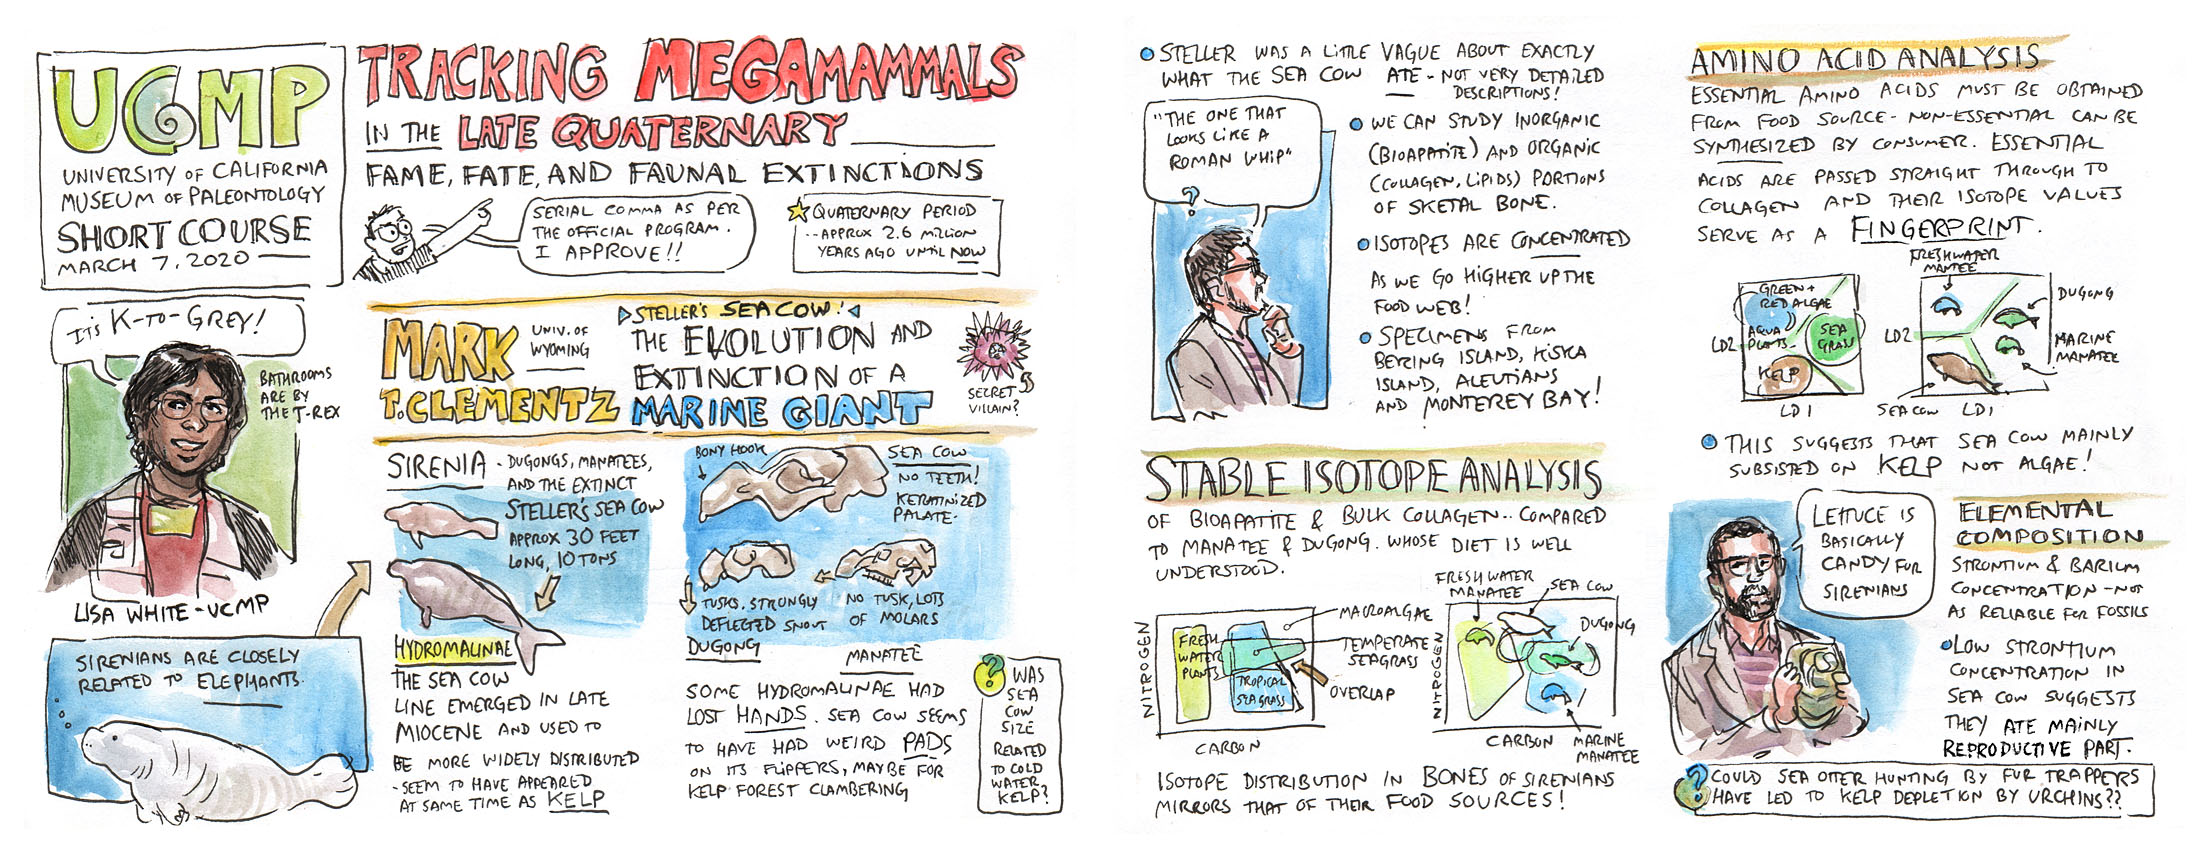 UCMP
UNIVERSITY OF CALIFORNIA
MUSEUM OF PALEONTOLOGY
SHORT COURSE
MARCH 7, 2020
TRACKING MEGAMAMMALS
IN THE LATE QUATERNARY
FAME, FATE, AND FAUNAL EXTINCTIONS
SERIAL COMMA AS PER
THE OFFICIAL PROGRAM.
I APPROVE!!
QUATERNARY PERIOD
-- APPROX 2.6 MILLION
YEARS AGO UNTIL NOW
IT'S K-TO-GREY!
BATHROOMS
ARE BY
THE T-REX
LISA WHITE - UCMP
SIRENIANS ARE CLOSELY
RELATED TO ELEPHANTS.
MARK
T. CLEMENTZ
UNIV. OF
WYOMING
STELLER'S SEA COW:
THE EVOLUTION AND
EXTINCTION OF A
MARINE GIANT
SECRET
VILLAIN?
SIRENIA - DUGONGS, MANATEES,
AND THE EXTINCT
STELLER'S SEA COW
APPROX 30 FEET
LONG, 10 TONS
HYDROMALINAE
THE SEA COW
LINE EMERGED IN LATE
MIOCENE AND USED TO
BE MORE WIDELY DISTRIBUTED
- SEEM TO HAVE APPEARED
AT SAME TIME AS KELP
BONY HOOK
SEA COW
NO TEETH!
KERATINIZED
PALATE.
TUSKS, STRONGLY
DEFLECTED SNOUT
DUGONG
NO TUSK, LOTS
OF MOLARS
MANATEE
SOME HYDROMALINAE HAD
LOST HANDS. SEA COW SEEMS
TO HAVE HAD WEIRD PADS
ON ITS FLIPPERS, MAYBE FOR
KELP FOREST CLAMBERING
? WAS
SEA
COW
SIZE
RELATED
TO COLD
WATER
KELP?
STELLER WAS A LITTLE VAGUE ABOUT EXACTLY
WHAT THE SEA COW ATE - NOT VERY DETAILED
DESCRIPTIONS!
"THE ONE THAT
LOOKS LIKE A
ROMAN WHIP"
?
WE CAN STUDY INORGANIC
(BIOAPATITE) AND ORGANIC
(COLLAGEN, LIPIDS) PORTIONS
OF SKETAL BONE.
ISOTOPES ARE CONCENTRATED
AS WE GO HIGHER UP THE
FOOD WEB!
SPECIMENS FROM
BERING ISLAND, KISKA
ISLAND, ALEUTIANS
AND MONTEREY BAY!
STABLE ISOTOPE ANALYSIS
OF BIOAPATITE & BULK COLLAGEN -- COMPARED
TO MANATEE & DUGONG. WHOSE DIET IS WELL
UNDERSTOOD.
NITROGEN
FRESH
WATER
PLANTS
TROPICAL
SEAGRASS
MACROALGAE
TEMPERATE
SEAGRASS
OVERLAP
CARBON
FRESHWATER
MANATEE
SEA COW
DUGONG
NITROGEN
CARBON
MARINE
MANATEE
ISOTOPE DISTRIBUTION IN BONES OF SIRENIANS
MIRRORS THAT OF THEIR FOOD SOURCES!
AMINO ACID ANALYSIS
ESSENTIAL AMINO ACIDS MUST BE OBTAINED
FROM FOOD SOURCE - NON-ESSENTIAL CAN BE
SYNTHESIZED BY CONSUMER. ESSENTIAL
ACIDS ARE PASSED STRAIGHT THROUGH TO
COLLAGEN AND THEIR ISOTOPE VALUES
SERVE AS A FINGERPRINT.
GREEN +
RED ALGAE
AQUA
PLANTS
SEA
GRASS
KELP
LD2
LD1
FRESHWATER
MANTEE
DUGONG
MARINE
MANATEE
LD2
SEA COW
LD1
THIS SUGGESTS THAT SEA COW MAINLY
SUBSISTED ON KELP NOT ALGAE!
LETTUCE IS
BASICALLY
CANDY FOR
SIRENIANS
ELEMENTAL
COMPOSITION
STRONTIUM & BARIUM
CONCENTRATION - NOT
AS RELIABLE FOR FOSSILS
LOW STRONTIUM
CONCENTRATION IN
SEA COW SUGGESTS
THEY ATE MAINLY
REPRODUCTIVE PART.
? COULD SEA OTTER HUNTING BY FUR TRAPPERS
HAVE LED TO KELP DEPLETION BY URCHINS??